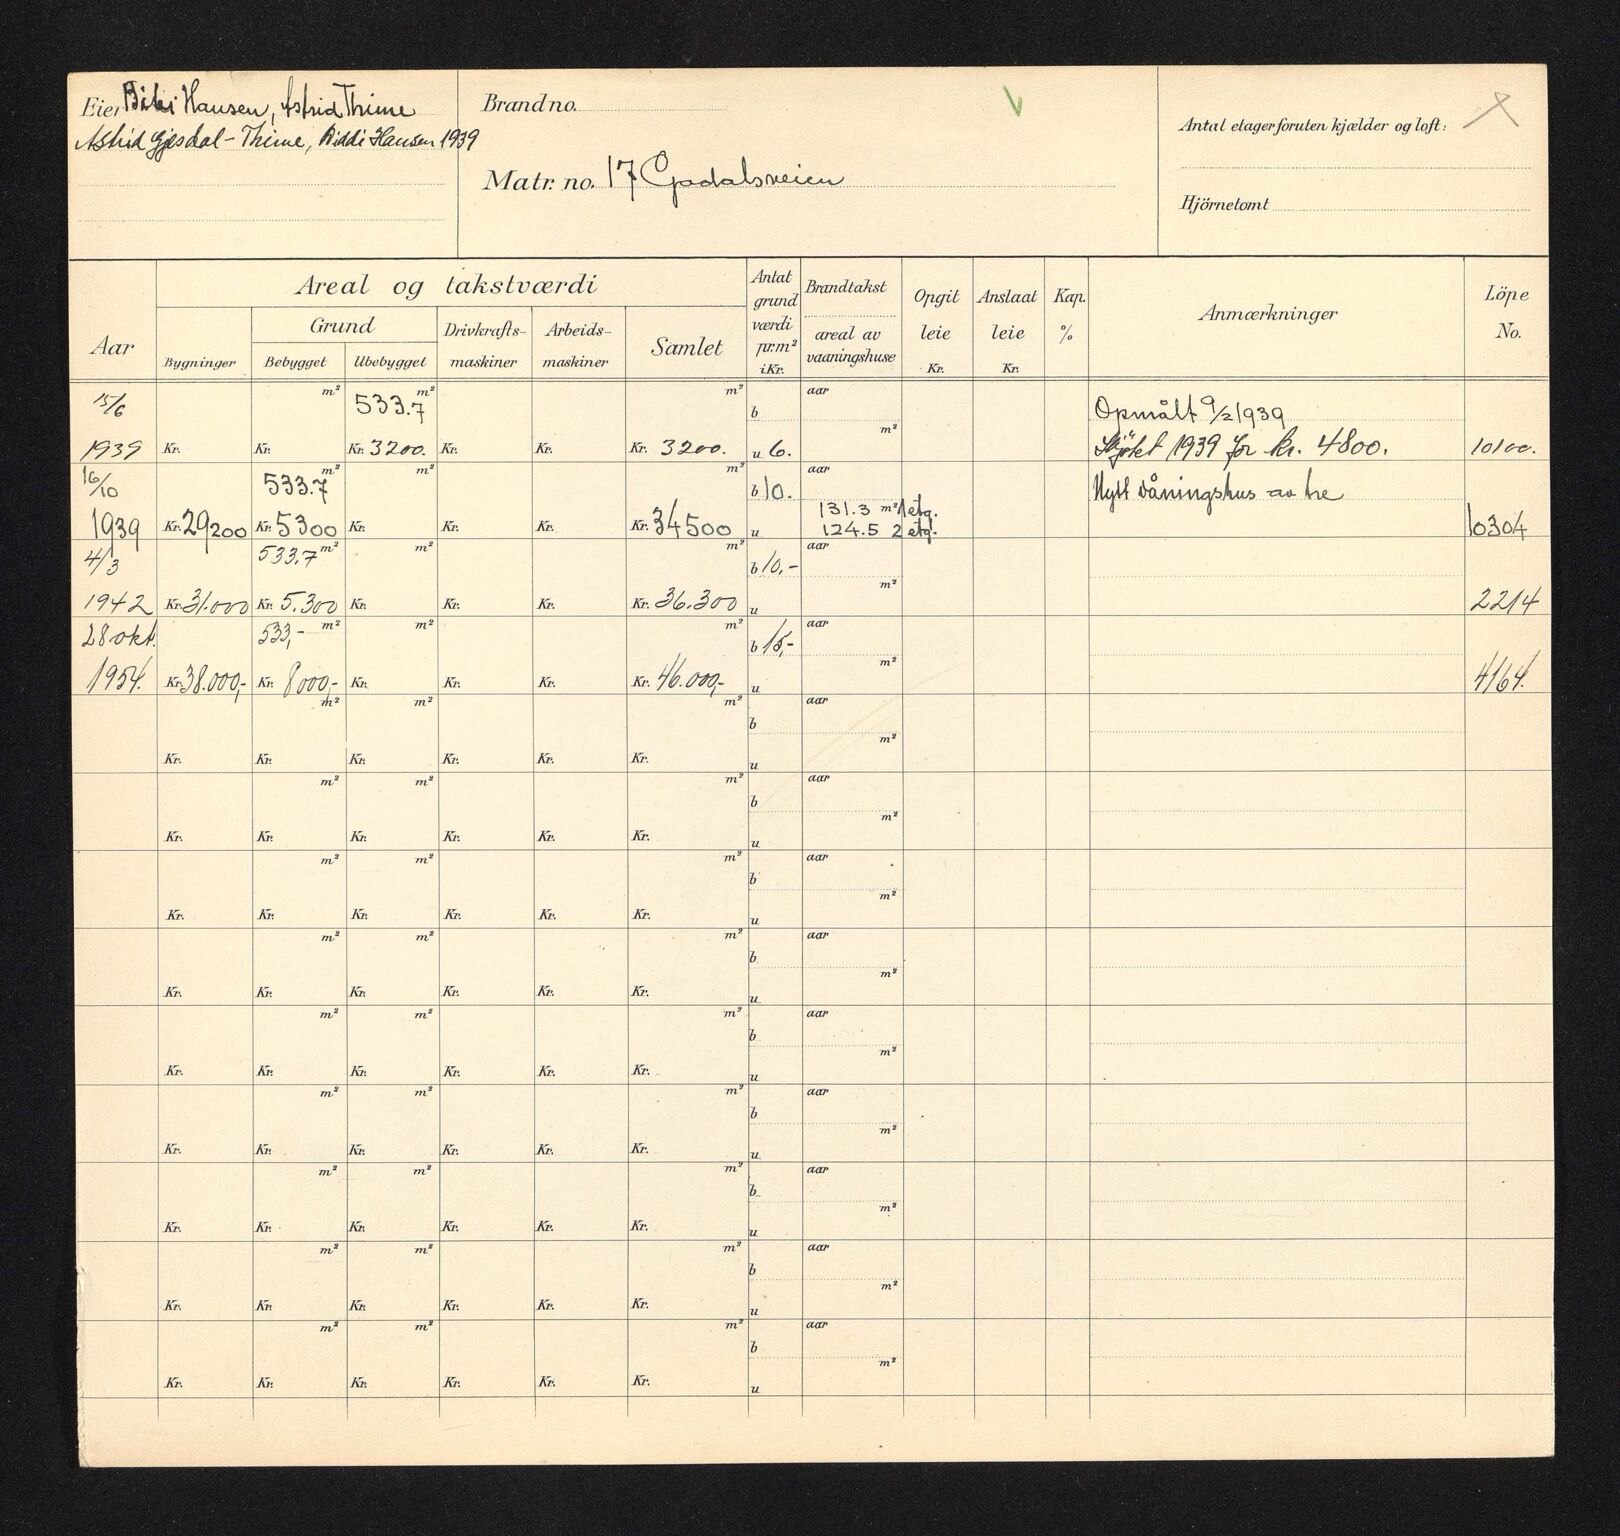 Eier Bibi Hansen, Astrid Thime
Astrid Gjesdal-Thime, Biddi Hansen 1939
Brand no.
Matr. no. 17 Gadalsveien
Antal etager foruten kjælder og loft:
Hjörnetomt
Aar
Areal og takstværdi
Bygninger
Grund
Bebygget
Ubebygget
Drivkrafts-
maskiner
Arbeids-
maskiner
Samlet
Antat
grund
værdi
pr. m²
i Kr.
Brandtakst
areal av
vaaningshuse
Opgit
leie
Kr.
Anslaat
leie
Kr.
Kap.
%
Anmærkninger
Löpe
No.
15/6 m² 533.7 m² m² b aar m² Opmålt 9/2 1939
1939 Kr. Kr. Kr. 3200. Kr. Kr. Kr. 3200. u 6. Skjötet 1939 for kr. 4800. 10100.
16/10 533.7 m² m² m² b 10. aar Nytt våningshus av tre
131.3 m² 1 etg.
1939 Kr. 29200 Kr. 5300 Kr. Kr. Kr. Kr. 34500 u 124.5 2 etg. 10304
4/3 533.7 m² m² m² b 10,- aar m²
1942 Kr. 31.000 Kr. 5.300 Kr. Kr. Kr. Kr. 36.300 u 2214
28 okt. 533,- m² m² m² b 15,- aar m²
1954. Kr. 38.000,- Kr. 8000,- Kr. Kr. Kr. Kr. 46.000,- u 4164.
m² m² m² b aar m²
Kr. Kr. Kr. Kr. Kr. Kr. u
m² m² m² b aar m²
Kr. Kr. Kr. Kr. Kr. Kr. u
m² m² m² b aar m²
Kr. Kr. Kr. Kr. Kr. Kr. u
m² m² m² b aar m²
Kr. Kr. Kr. Kr. Kr. Kr. u
m² m² m² b aar m²
Kr. Kr. Kr. Kr. Kr. Kr. u
m² m² m² b aar m²
Kr. Kr. Kr. Kr. Kr. Kr. u
m² m² m² b aar m²
Kr. Kr. Kr. Kr. Kr. Kr. u
m² m² m² b aar m²
Kr. Kr. Kr. Kr. Kr. Kr. u
m² m² m² b aar m²
Kr. Kr. Kr. Kr. Kr. Kr. u